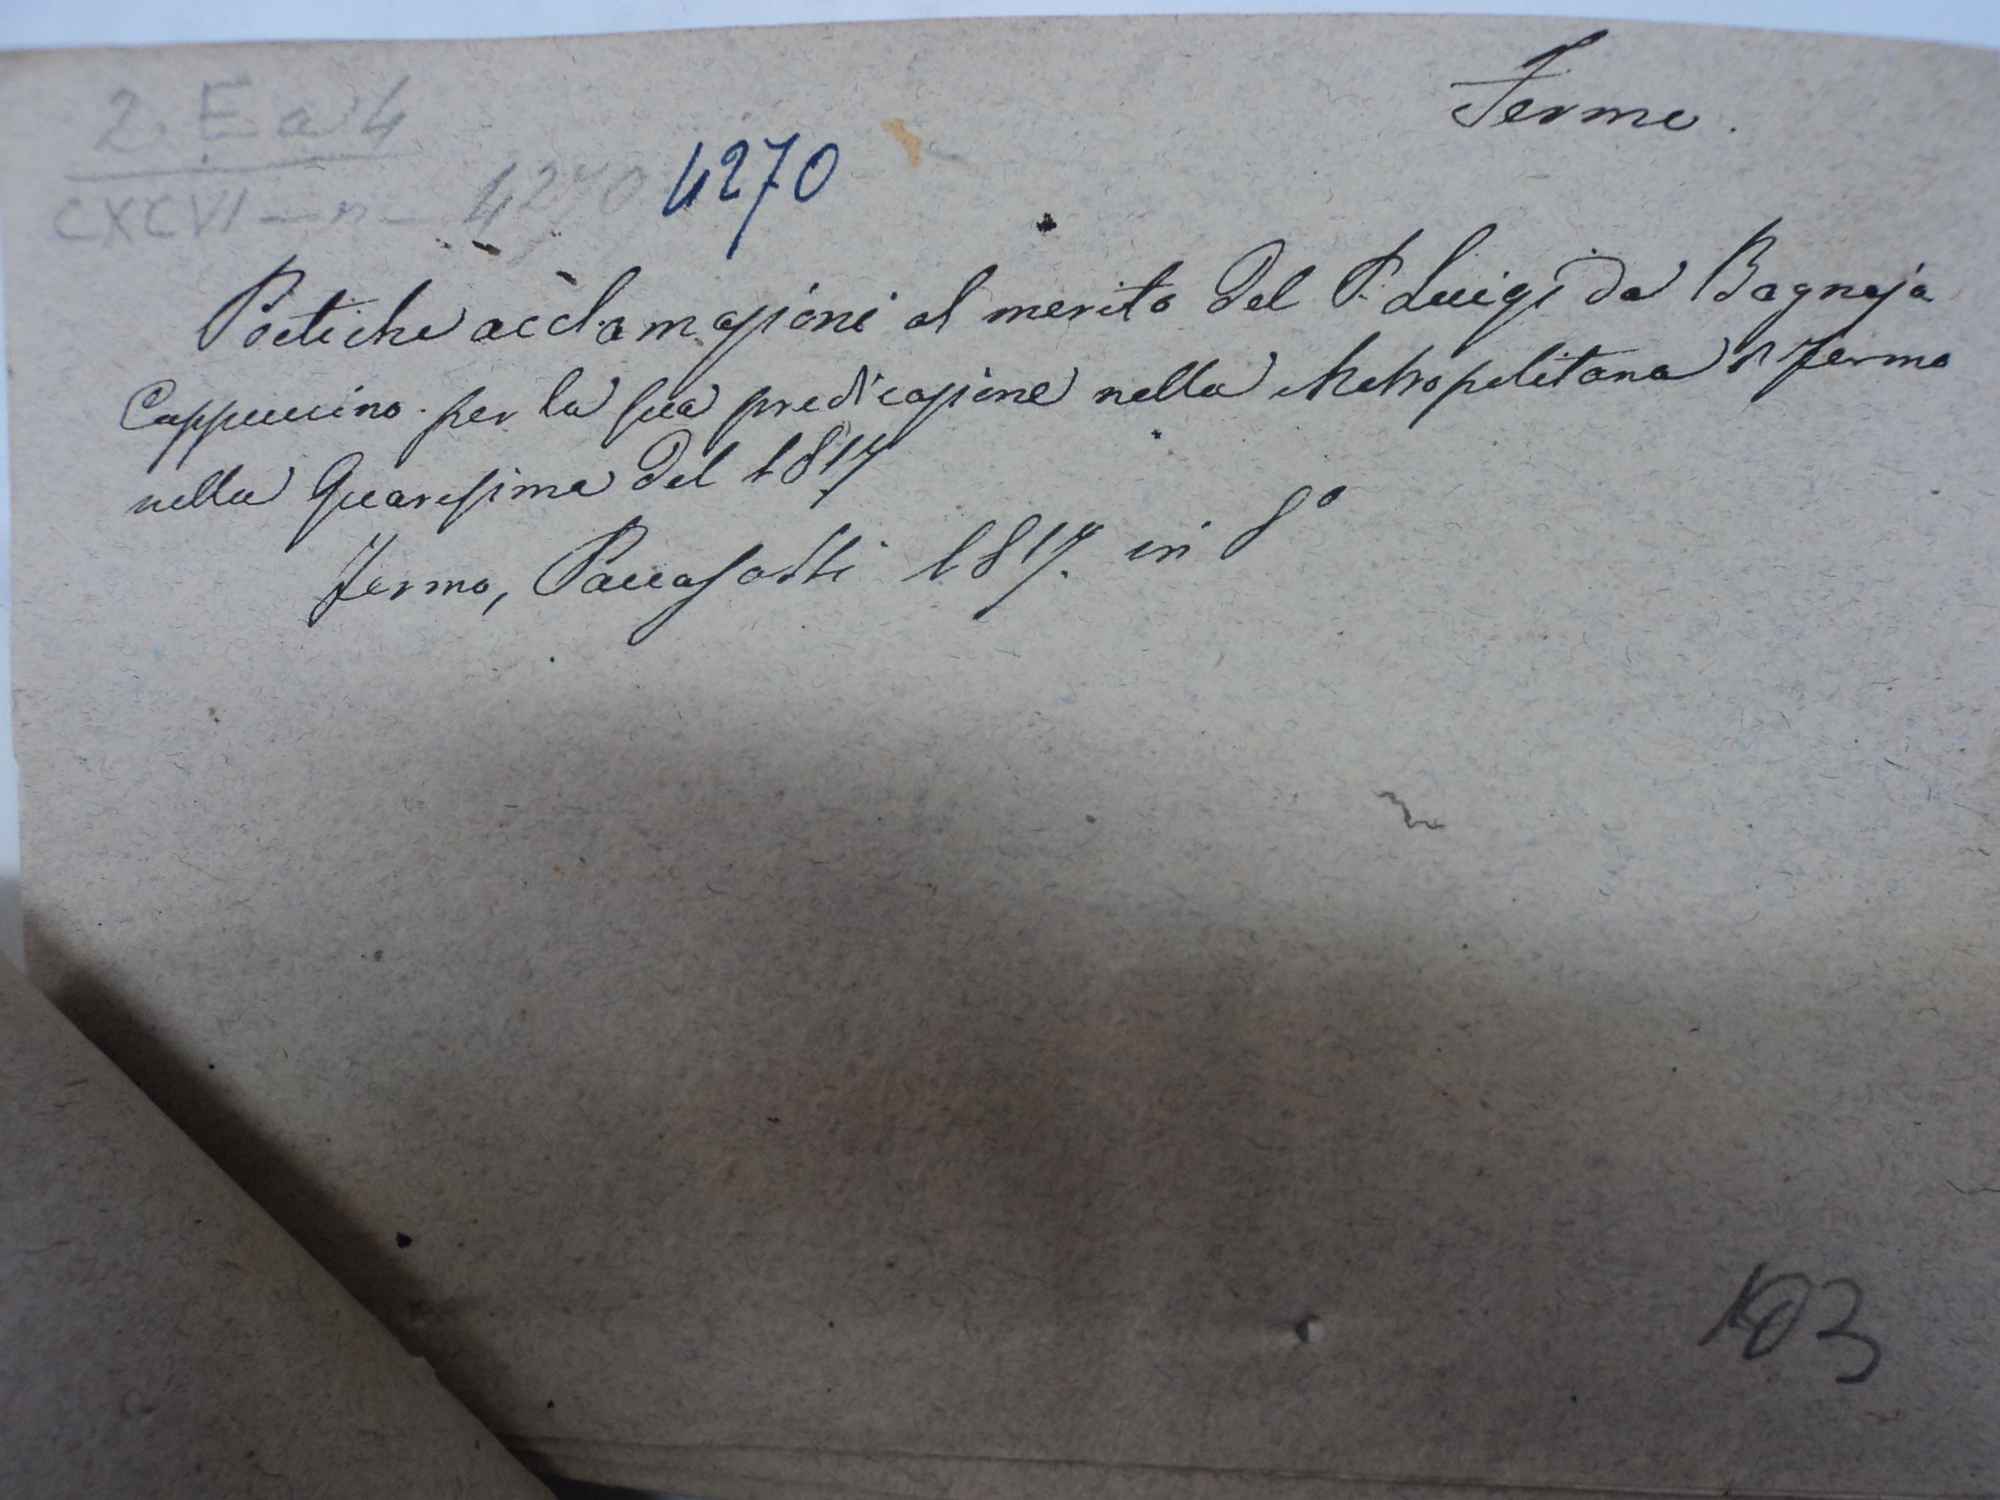 Fermo.
2. E a 4
CXCVI - n - 4270 4270
Poetiche acclamazioni al merito del P. Luigi da Bagnaja
Cappuccino per la sua predicazione nella Metropolitana di Fermo
nella Quaresima del 1817
Fermo, Paccasassi 1817. in 8º
103